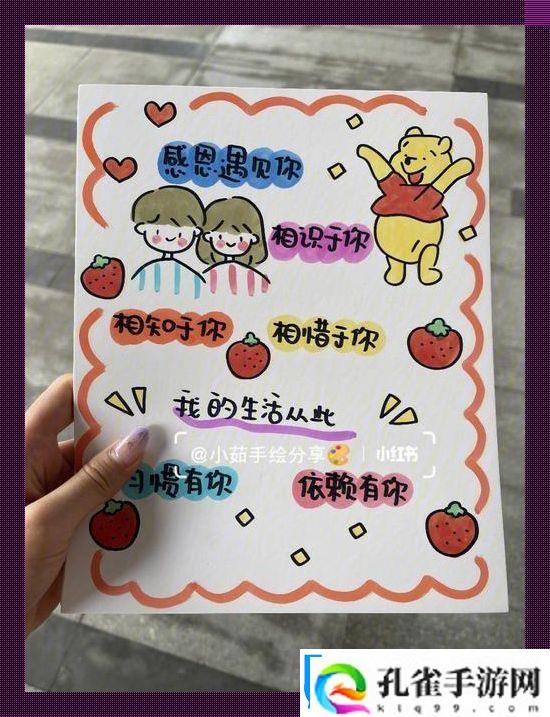 感恩遇见你
相识于你
相知于你
相惜于你
我的生活从此
@小茹手绘分享 | 小红书
习惯有你
依赖有你
孔雀手游网
klq99.com